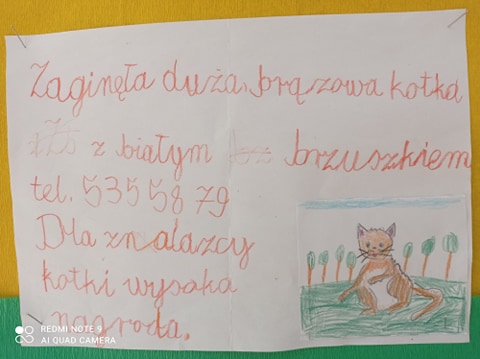 Zaginęła duża, brązowa kotka
z białym brzuszkiem
tel. 535 58 79
Dla znalazcy
kotki wysoka
nagroda.
REDMI NOTE 9
AI QUAD CAMERA